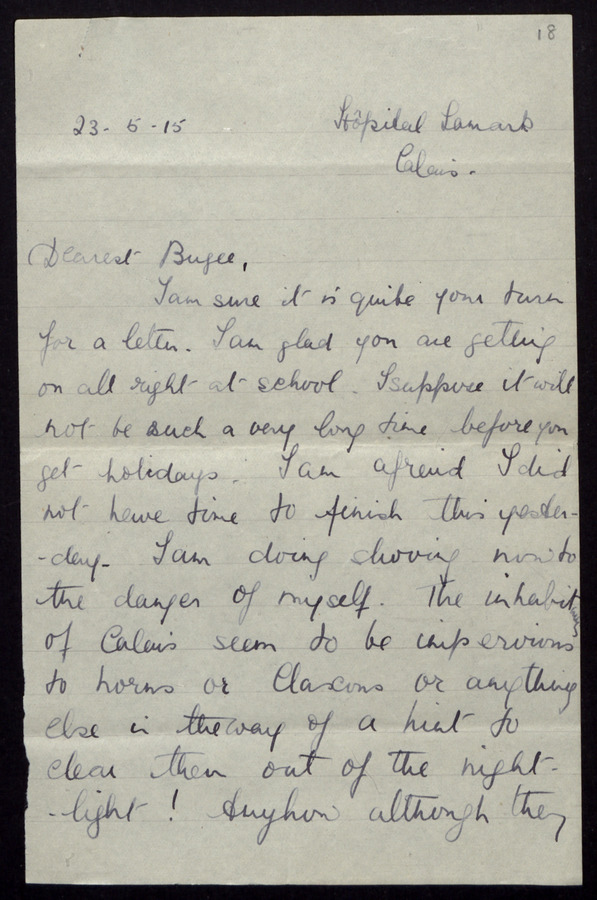 18
23-5-15 Hôpital Lamark
Calais.
Dearest Bugee,
I am sure it is quite your turn
for a letter. I am glad you are getting
on all right at school. I suppose it will
not be such a very long time before you
get holidays. I am afreid I did
not have time to finish this yester-
-day. I am doing driving now to
the danger of myself. The inhabitants
of Calais seem to be impervious
to horns or Claxons or anything
else in the way of a hint to
clear them out of the night-
-light! Anyhow although they